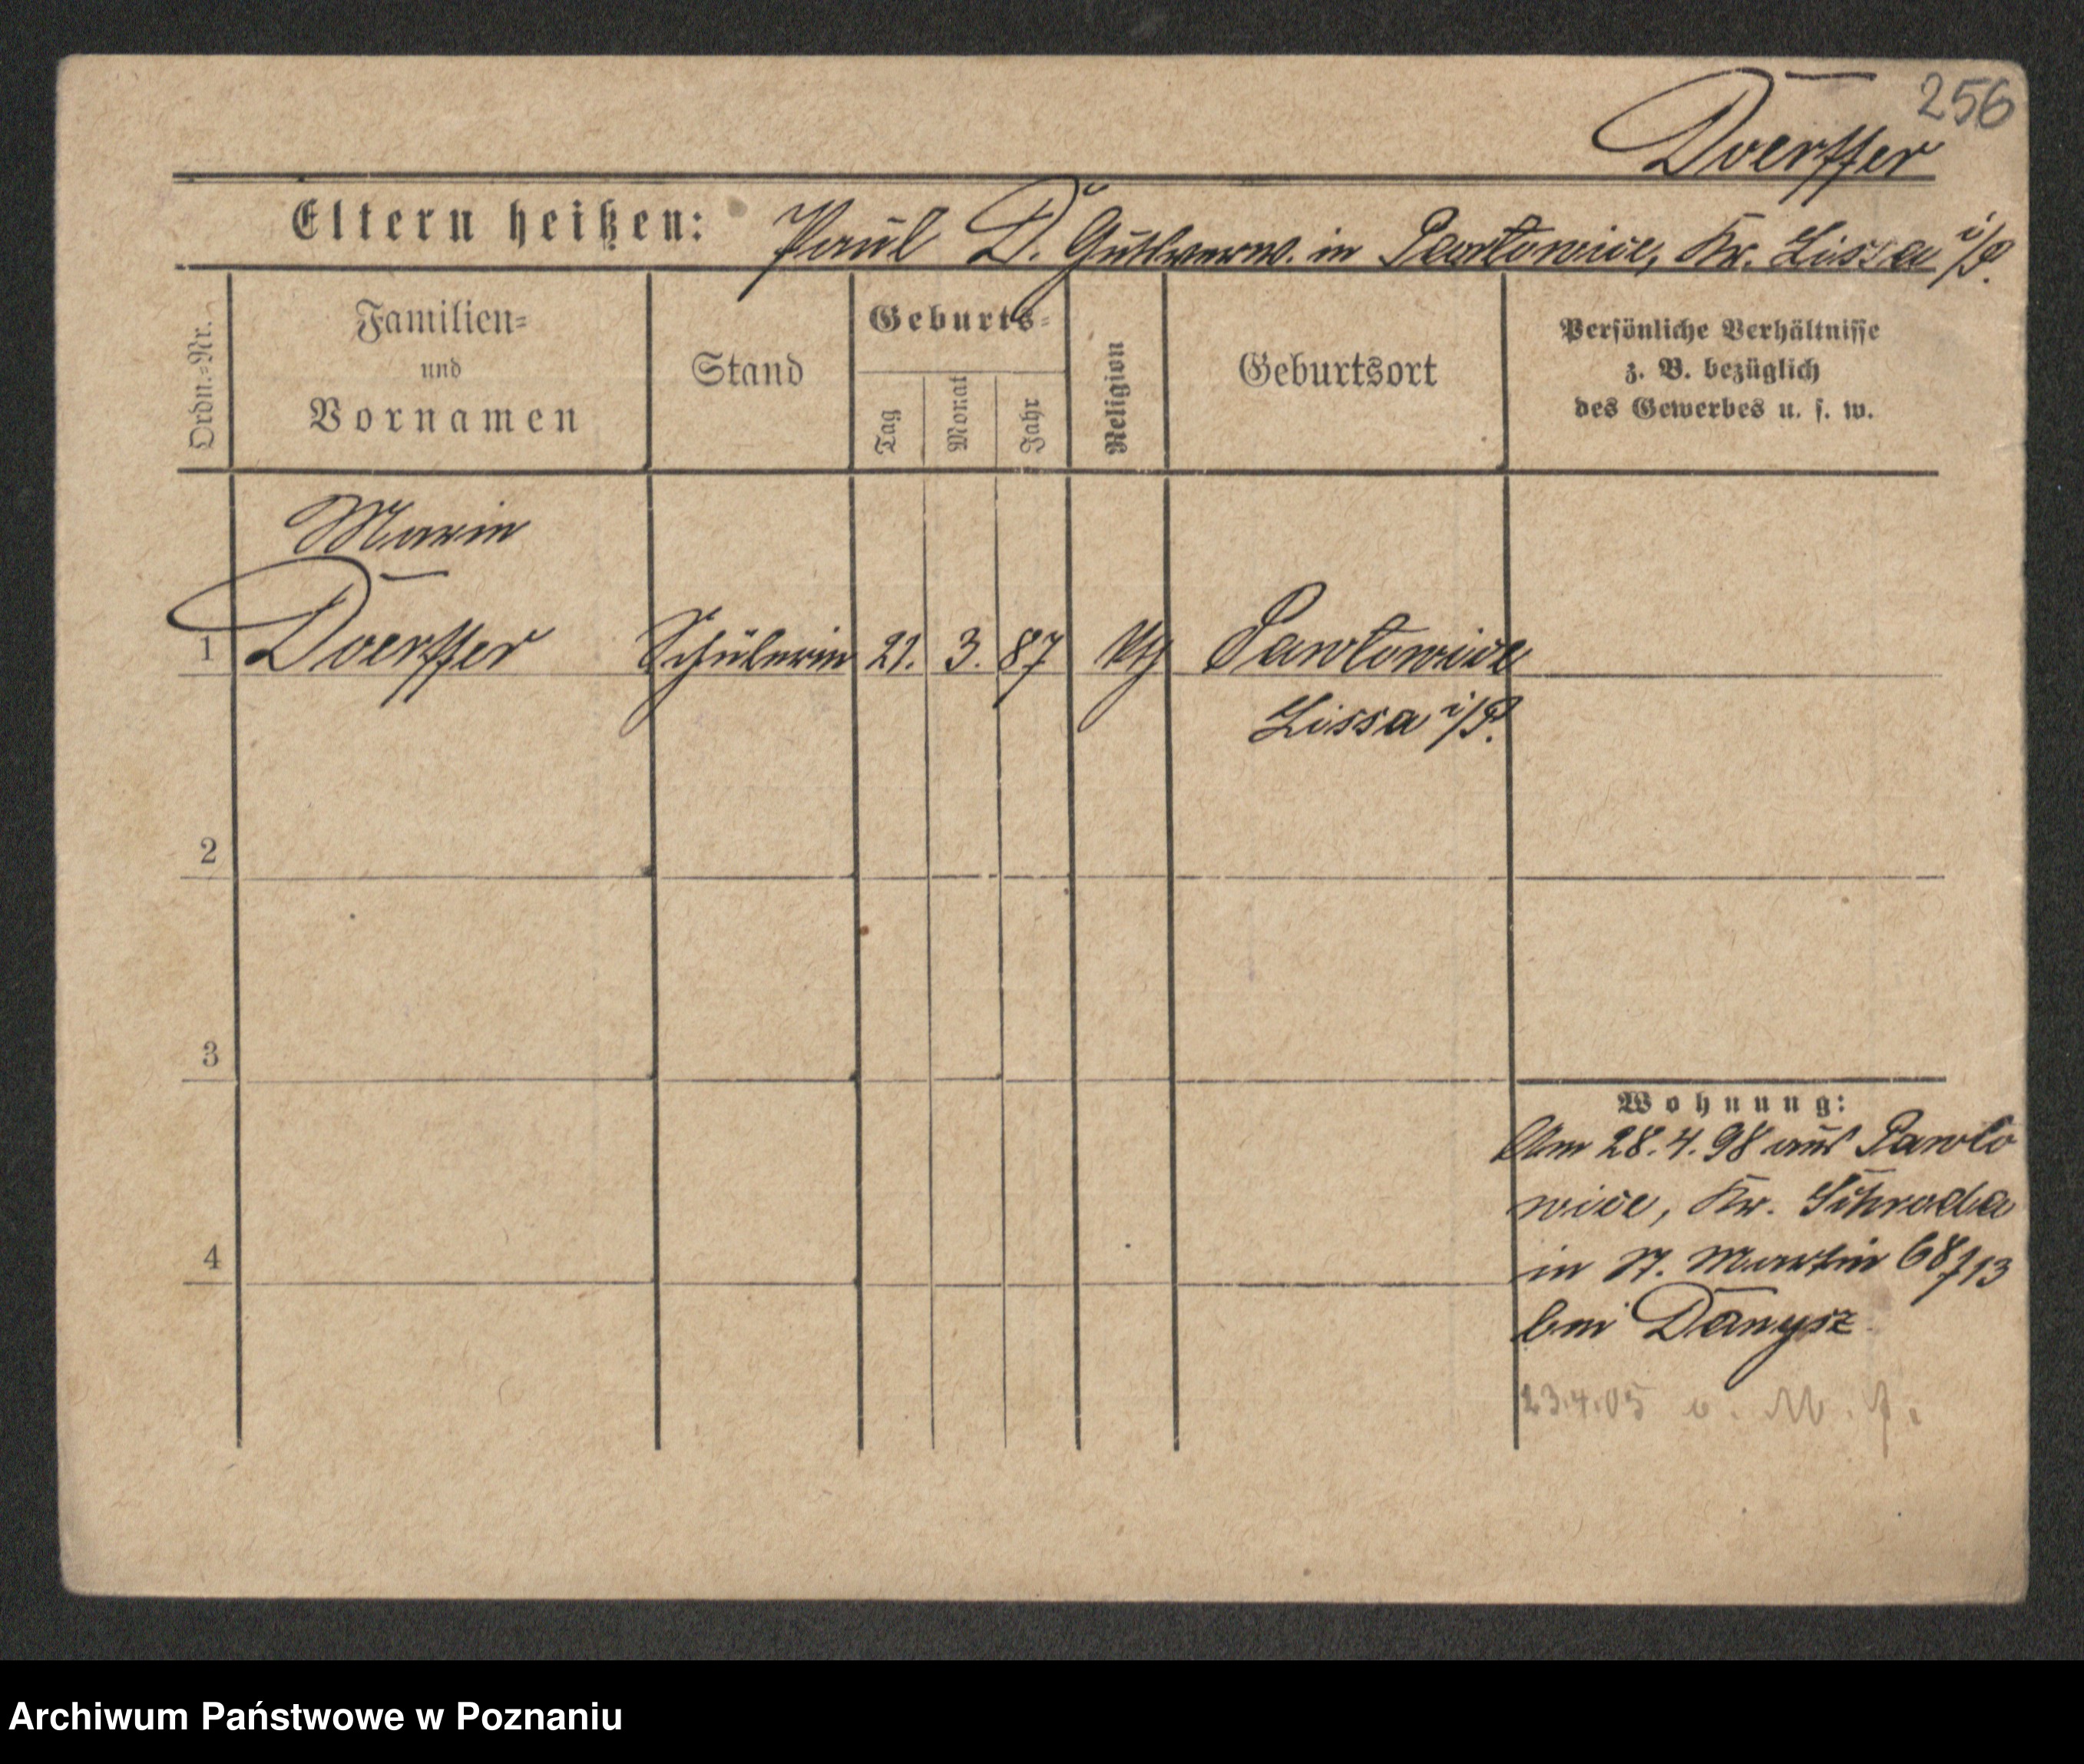 256
Doerffer
Eltern heißen: Paul D. Gutsverw. in Pawlowice, Kr. Lissa i/P.
Ordn.=Nr.
Familien=
und
Vornamen
Stand
Geburts=
Tag
Monat
Jahr
Religion
Geburtsort
Persönliche Verhältnisse
z. B. bezüglich
des Gewerbes u. s. w.
Marie
1 Doerffer Schülerin 21. 3. 87 kth Pawlowice
Lissa i/P.
2
3
4
Wohnung:
Am 28.4.98 aus Pawlo
wice, Kr. Schroda
in St. Martin 68
bei Danysz
23.4.05
Archiwum Państwowe w Poznaniu